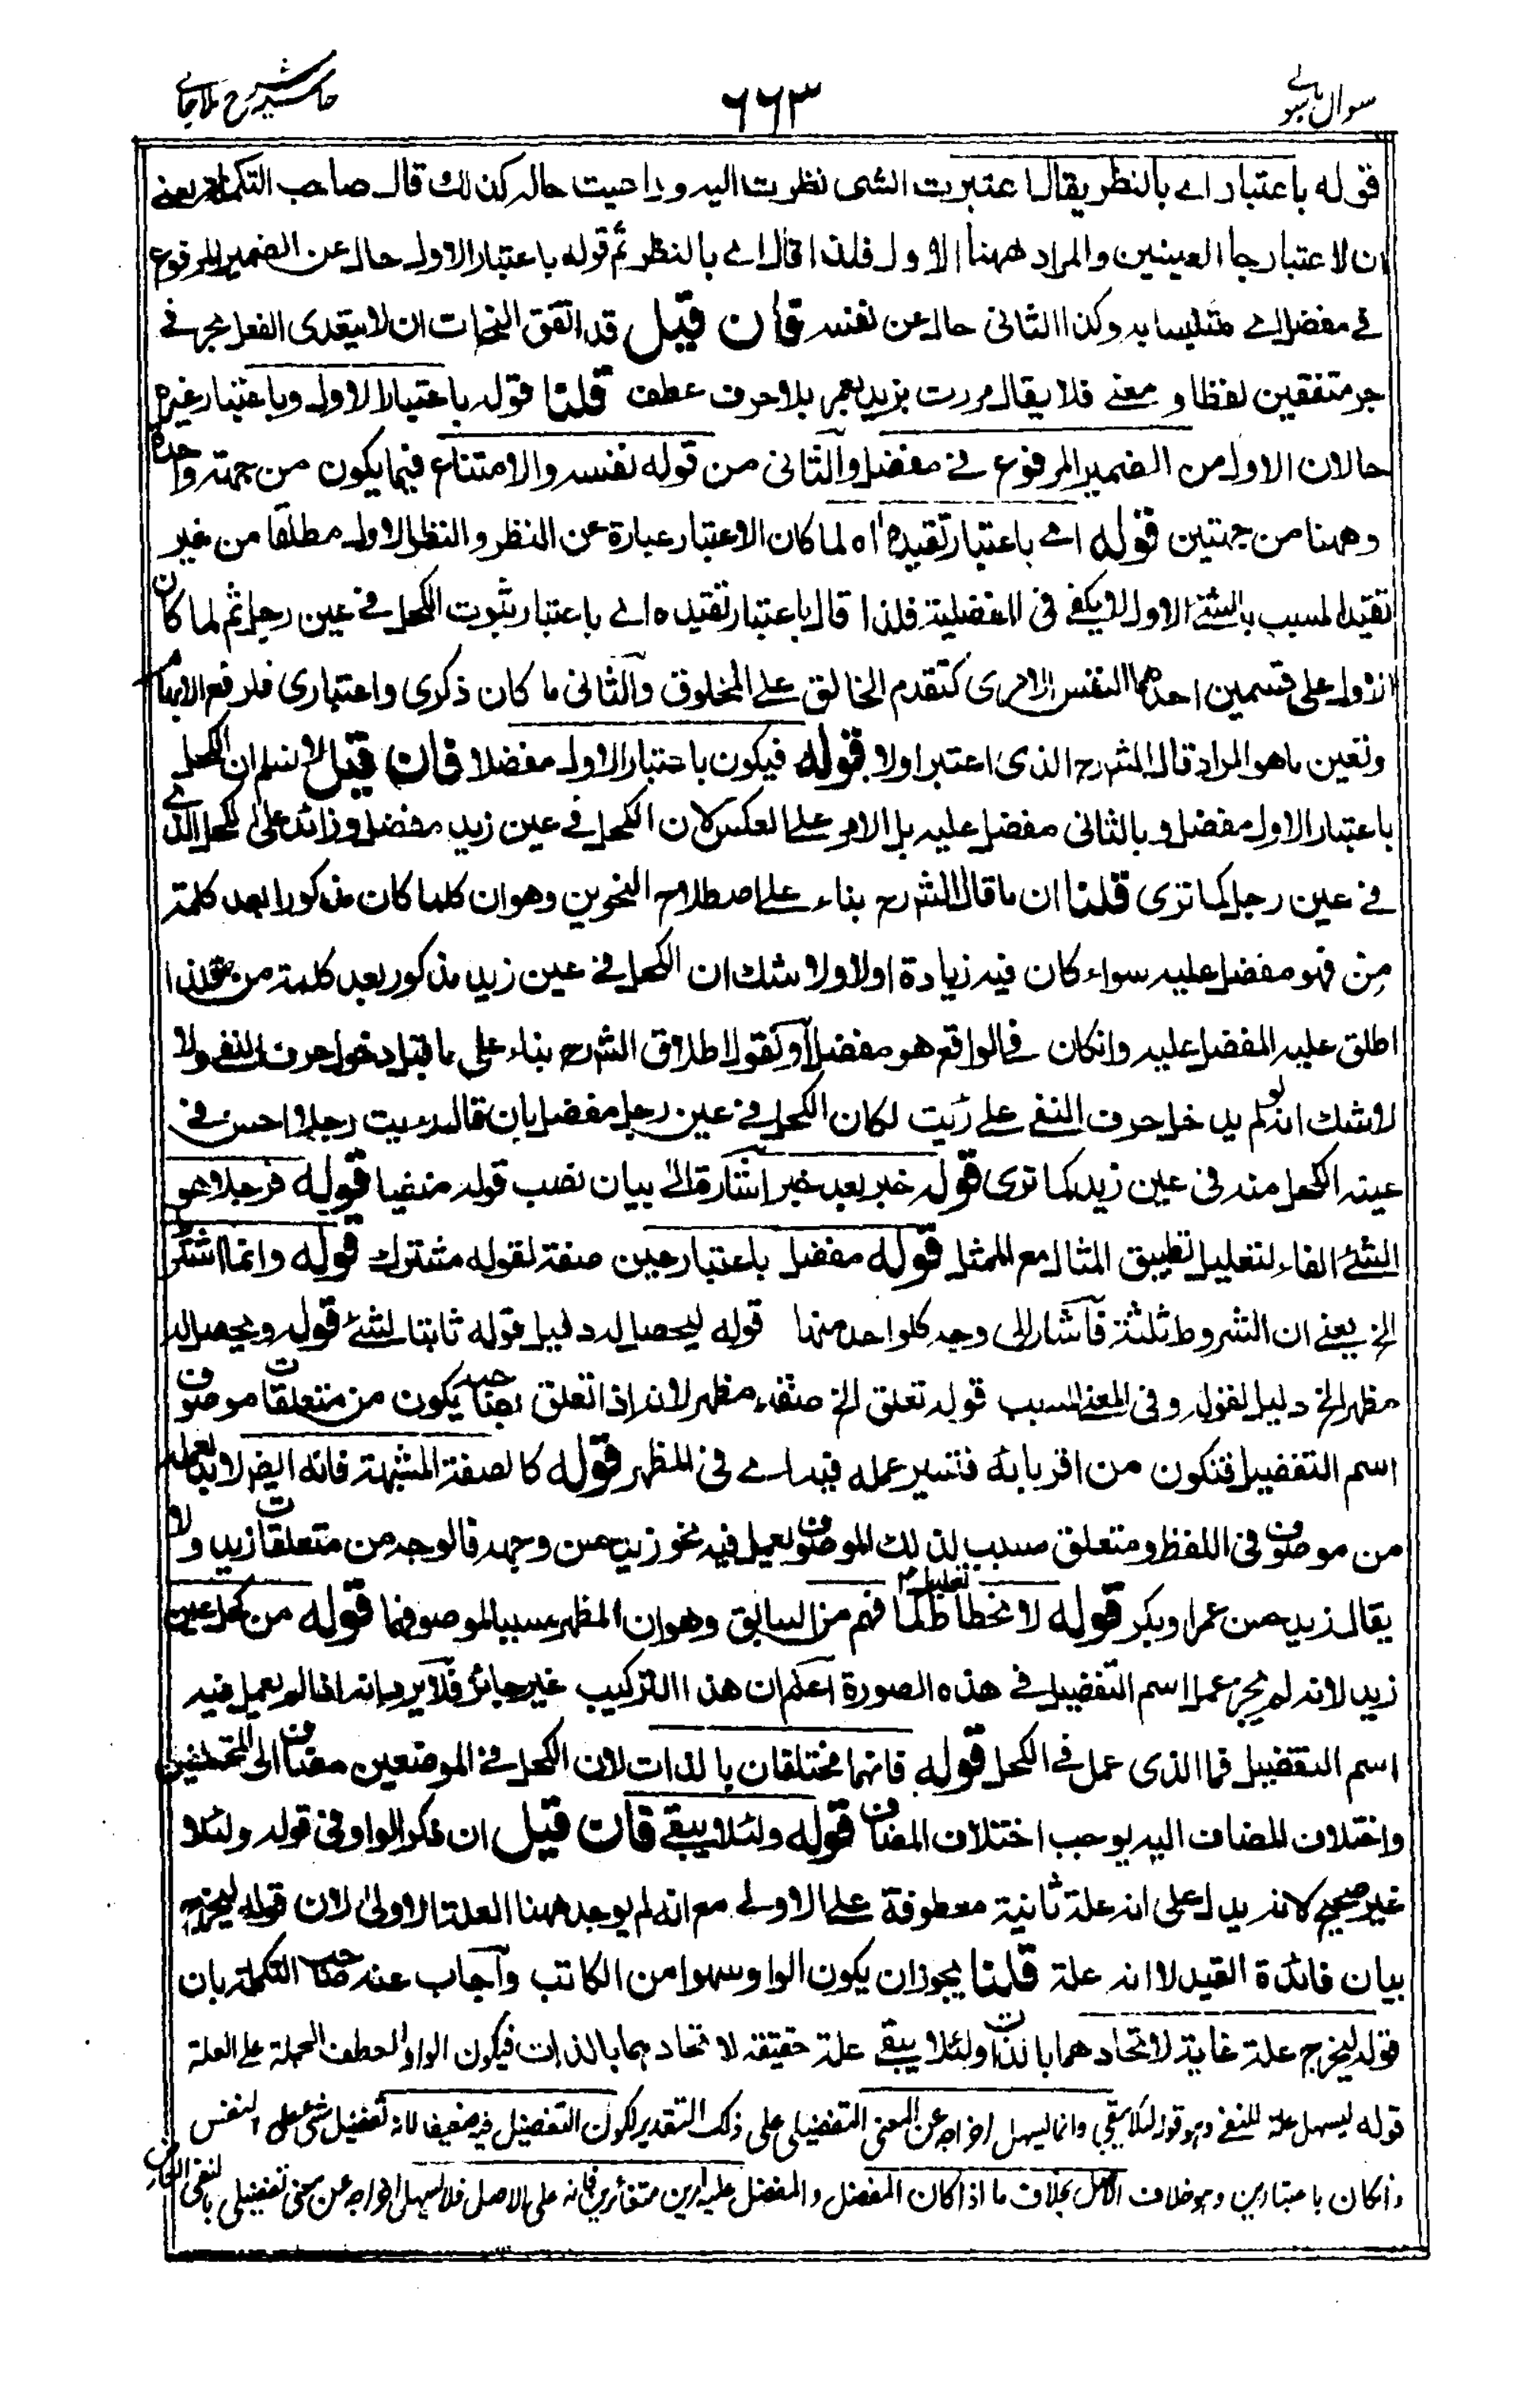 سوال باسولے ٦٦٣ حاشیہ شرح ملا جامے
قوله باعتبار اے بالنظر يقال اعتبرت الشى نظرت اليه وراعيت حاله كذلك قال صاحب التكملة يعنے
ان لاعتبار جا المعينين والمراد ههنا الاول فلذا قال اے بالنظر ثم قوله باعتبار الاول حال عن الضمير المرفوع
فے مفضل اے متلبسا به وكذا الثانى حال عن نفسه فان قيل قد اتفق النحات ان لا يتعدى الفعل بحرفے
جر متفقين لفظا و معنے فلا يقال مررت بزيد بعمر بلا حرف عطف قلنا قوله باعتبار الاول وباعتبار غيره
حالان الاول من الضمير المرفوع فے مفضل والثانى من قوله نفسه والامتناع فيما يكون من جهته واحدة
وههنا من جهتين قوله اے باعتبار تقيده اه لما كان الاعتبار عبارة عن النظر والنظر الاول مطلقا من غير
تقيد المسبب بالشئ الاول لا يكفے فى المفضلية فلذا قال باعتبار تقيده اے باعتبار ثبوت الكحل فے عين رجل ثم لما كان
الاول على قسمين احدهما النفس الامرى كتقدم الخالق علے المخلوق والثانى ما كان ذكرى واعتبارى فلرفع الابهام
وتعين ما هو المراد قال الشرح الذى اعتبر اولا قوله فيكون باعتبار الاول مفضلا فان قيل لا نسلم ان الكحل
باعتبار الاول مفضل و بالثانى مفضل عليه بل الامر علے العكس لان الكحل فے عين زيد مفضل وزائد على الكحل الذے
فے عين رجل كما ترى قلنا ان ما قال الشرح بناء علے اصطلاح النحوين وهو ان كلما كان مذكورا بعد كلمته
من فهو مفضل عليه سواء كان فيه زيادة اولا ولا شك ان الكحل فے عين زيد مذكور بعد كلمة من فلذا
اطلق عليه المفضل عليه وانكان فے الواقع هو مفضلا او نقول اطلاق الشرح بناء على ما قبل دخول حرف النفے ولا
لاشك انه لو لم يدخل حرف النفے علے رئيت لكان الكحل فے عين رجل مفضل بان قال رءيت رجلا احسن فے
عينه الكحل منه فى عين زيد كما ترى قوله خبر بعد خبر اشارة الے بيان نصب قوله منفيا قوله فرجلا هو
الشئ الفاء لتعليل تطبيق المثال مع الممثل قوله مفضل باعتبار حين صفة لقوله مشترك قوله وانما اشترط
الخ يعنے ان الشروط ثلثة فاشار الى وجه كل واحد منها قوله ليحصل له دليل قوله ثابتا لشئ قوله ويحصل له
مظهر الخ دليل لقوله وفى المعنے لمسبب قوله تعلق الخ صفة مظهر لانه اذا تعلق بصاحبه يكون من متعلقات موصوف
اسم التفضيل فتكون من اقربائه فتيسر عمله فيه اے فى المظهر قوله كالصفة المشبهة فانه ايضا لابد لعمله
من موصوف فى اللفظ ومتعلق مسبب لذلك الموصوف يعمل فيه نحو زيد حسن وجهه فالوجه من متعلقات زيد ولا
يقال زيد حسن عمرا وبكر قوله لانحطاط تعليل لما فهم من السابق وهو ان المظهر سببا لموصوفها قوله من كحل عين
زيد لانه لم يجز عمل اسم التفضيل فے هذه الصورة اعلم ان هذا التركيب غير جائز فلا يرد بانه اذا لم يعمل فيه
اسم التفضيل فما الذى عمل فے الكحل قوله فانهما مختلفان بالذات لان الكحل فے الموضعين مضاف الى المختلفين
واختلاف المضاف اليه يوجب اختلاف المضاف قوله ولئلا يبقے فان قيل ان ذكر الواو فى قوله ولئلا
غير صحيح لانه يدل على انه علة ثانية معطوفة علے الاولے مع انه لم يوجد ههنا العلة الاولى لان قوله ليخرج
بيان فائدة القيد لا انه علة قلنا يجوز ان يكون الواو سهوا من الكاتب وآجاب عنه صاحب التكملة بان
قوله ليخرج علة غاية لاتحادهما بالذات ولئلا يبقے علة حقيقة لاتحادهما بالذات فيكون الواو لعطف الجملة علے العلة
قوله ليسهل علة للنفے وهو قوله لئلا يبقى وانما ليسهل اخراجه عن المعنى التفضيلى على ذلك التقدير لكون التفضيل فيه ضعيفا لانه تفضيل شى على النفس
وانكان باعتبارين وهو خلاف الاصل بخلاف ما اذا كان المفضل والمفضل عليه امرين متغائرين فانه على الاصل فلا يسهل اخراجه عن معنى تفضيلى بالنفى العارض